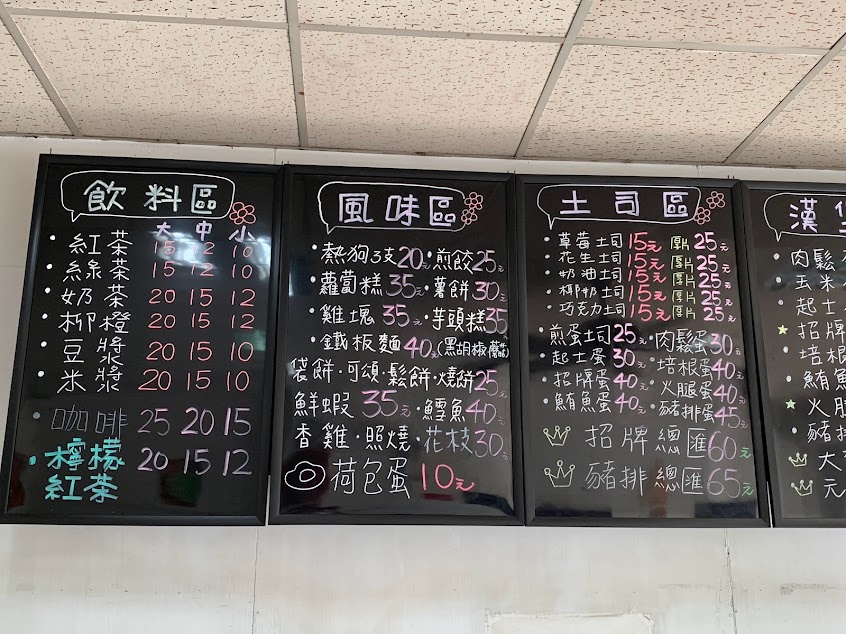 飲料區
大 中 小
・紅茶 15 12 10
・綠茶 15 12 10
・奶茶 20 15 12
・柳橙 20 15 12
・豆漿 20 15 10
・米漿 20 15 10
・咖啡 25 20 15
・檸檬紅茶 20 15 12
風味區
・熱狗3支20元・煎餃25元
・蘿蔔糕35元・薯餅30元
・雞塊35元・芋頭糕35
・鐵板麵40元(黑胡椒蘑菇)
袋餅・可頌・鬆餅・燒餅25元
鮮蝦35元・鱈魚40元
香雞・照燒・花枝30元
荷包蛋10元
土司區
・草莓土司15元 厚片25元
・花生土司15元 厚片25元
・奶油土司15元 厚片25元
・椰奶土司15元 厚片25元
・巧克力土司15元 厚片25元
・煎蛋土司25元・肉鬆蛋30元
・起士蛋30元・培根蛋40元
・招牌蛋40元・火腿蛋40元
・鮪魚蛋40元・豬排蛋45元
招牌總匯60元
豬排總匯65元
漢
・肉鬆
・玉米
・起士
招牌
・培根
・鮪魚
火腿
・豬排
大
元